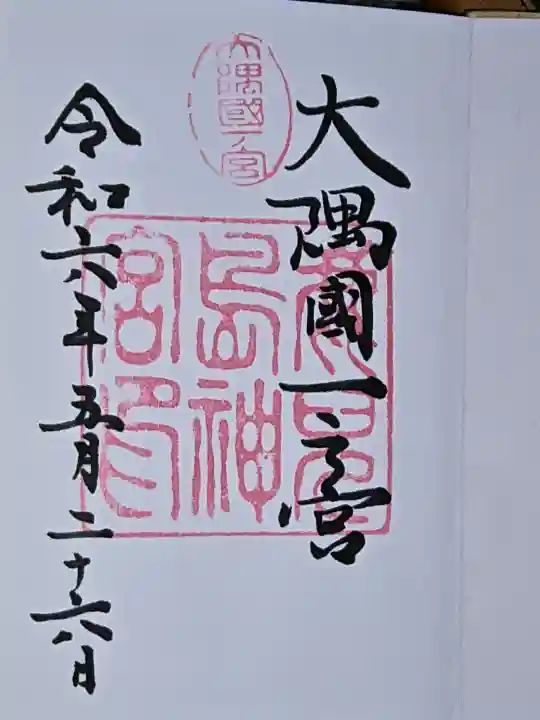 大隅國一之宮
大隅國一ノ宮
鹿兒島神宮印
令和六年五月二十六日